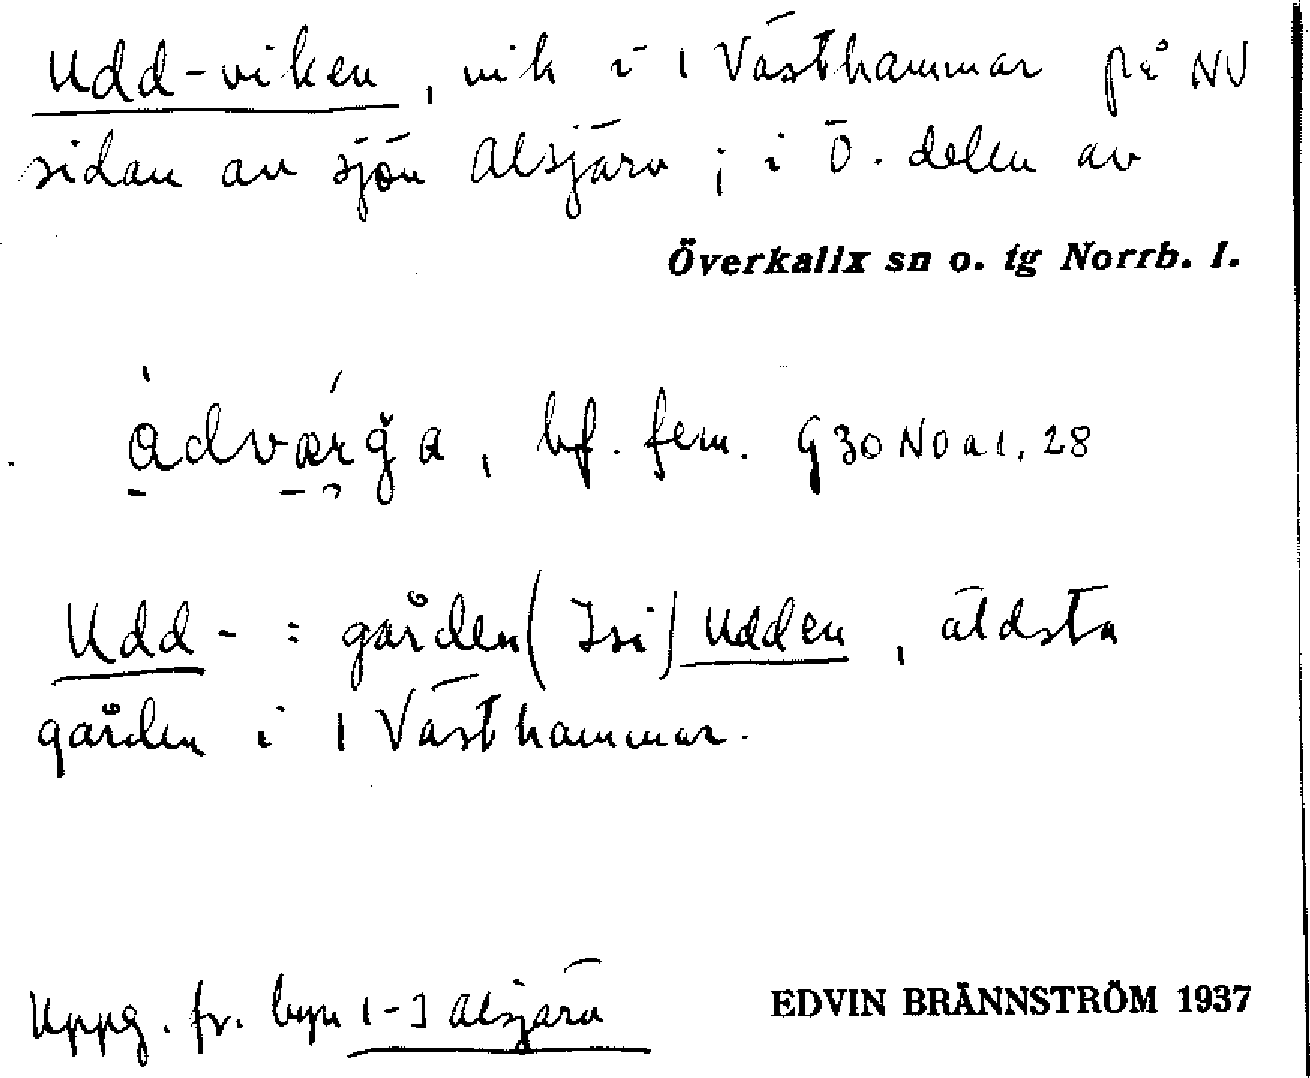 Udd-viken, vik i 1 Västhammar på NV
sidan av sjön Alsjärv; i Ö. delen av
Överkalix sn o. tg Norrb. l.
bf. fem. G30 NO a 1, 28
Udd- : gården (Isi) Udden, äldsta
gården i 1 Västhammar.
Uppg. fr. byn 1-3 Alsjärv
EDVIN BRÄNNSTRÖM 1937